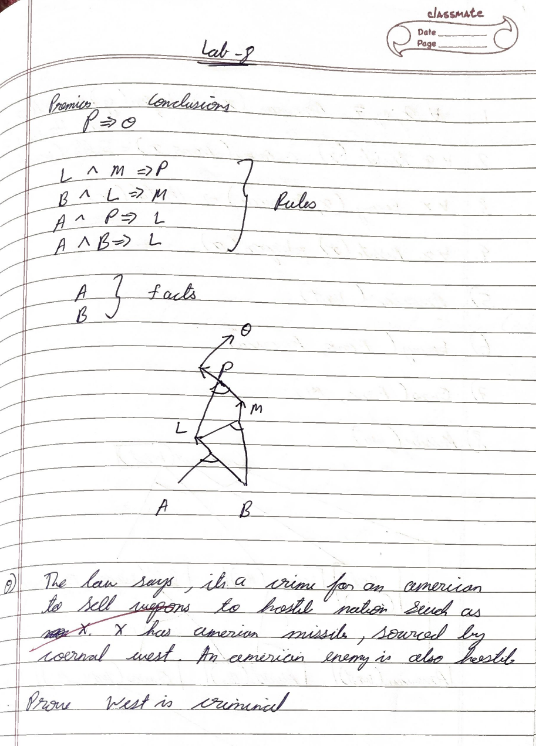 classmate
Date
Page
Lab-8
Premises Conclusions
P => Q
L ^ M => P
B ^ L => M
A ^ P => L
A ^ B => L
} Rules
A
B
} facts
Q
P
M
L
A B
Q) The law says, its a crime for an american
to sell wepons to hostile nation such as
X. X has amerian missile, sourced by
coernal west. An american enemy is also hostile
Prove West is criminal